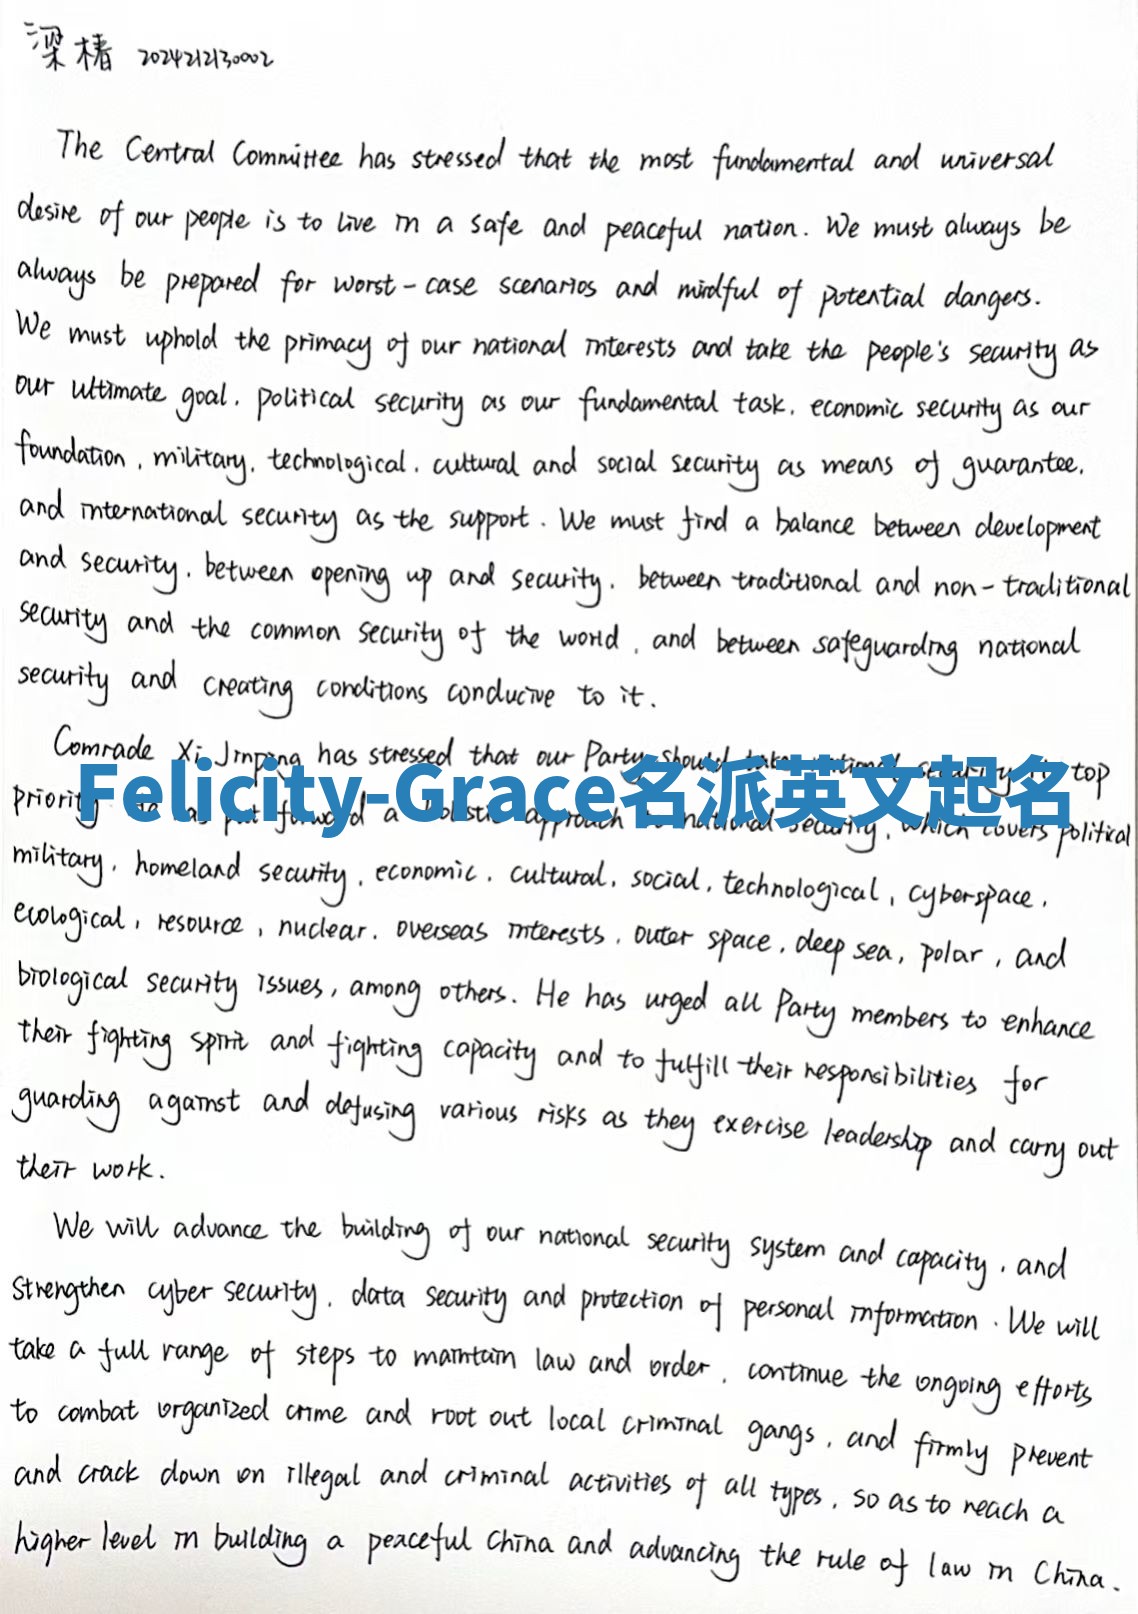 梁椿 2024212130002
The Central Committee has stressed that the most fundamental and universal
desire of our people is to live in a safe and peaceful nation. We must always be
always be prepared for worst-case scenarios and mindful of potential dangers.
We must uphold the primacy of our national interests and take the people's security as
our ultimate goal, political security as our fundamental task, economic security as our
foundation, military, technological, cultural and social security as means of guarantee,
and international security as the support. We must find a balance between development
and security, between opening up and security, between traditional and non-traditional
security and the common security of the world, and between safeguarding national
security and creating conditions conducive to it.
Comrade Xi Jinping has stressed that our Party should take national security its top
Felicity-Grace名派英文起名
priority has put forward a holistic approach to national security, which covers political
military, homeland security, economic, cultural, social, technological, cyberspace,
ecological, resource, nuclear, overseas interests, outer space, deep sea, polar, and
biological security issues, among others. He has urged all Party members to enhance
their fighting spirit and fighting capacity and to fulfill their responsibilities for
guarding against and defusing various risks as they exercise leadership and carry out
their work.
We will advance the building of our national security system and capacity, and
strengthen cyber security, data security and protection of personal information. We will
take a full range of steps to maintain law and order, continue the ongoing efforts
to combat organized crime and root out local criminal gangs, and firmly prevent
and crack down on illegal and criminal activities of all types, so as to reach a
higher level in building a peaceful China and advancing the rule of law in China.